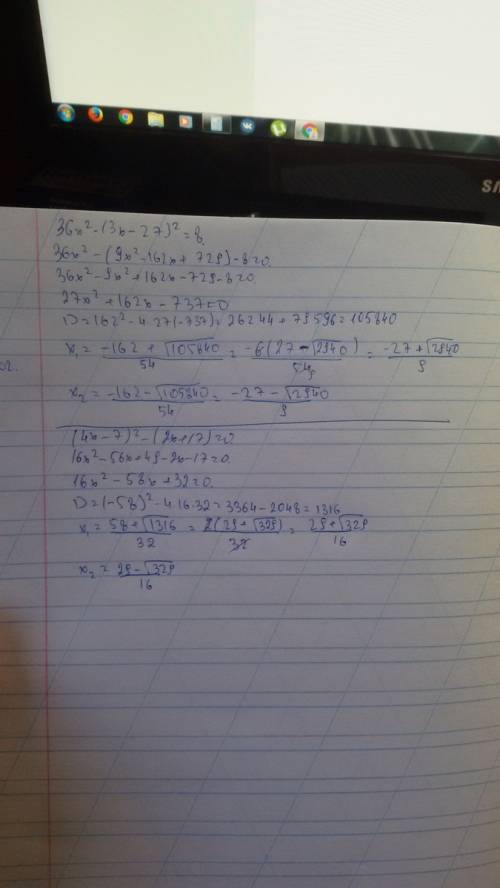 SA
36x² - (3x - 27)² = 8.
36x² - (9x² - 162x + 729) - 8 = 0.
36x² - 9x² + 162x - 729 - 8 = 0.
27x² + 162x - 737 = 0
D = 162² - 4·27(-737) = 26244 + 79596 = 105840
x₁ = (-162 + √105840)/54 = -6(27 - √2940)/54 9 = (-27 + √2940)/9
02.
x₂ = (-162 - √105840)/54 = (-27 - √2940)/9
(4x - 7)² - (2x + 17) = 0
16x² - 56x + 49 - 2x - 17 = 0.
16x² - 58x + 32 = 0.
D = (-58)² - 4·16·32 = 3364 - 2048 = 1316
x₁ = (58 + √1316)/32 = 2(29 + √329)/32 = (29 + √329)/16
x₂ = (29 - √329)/16